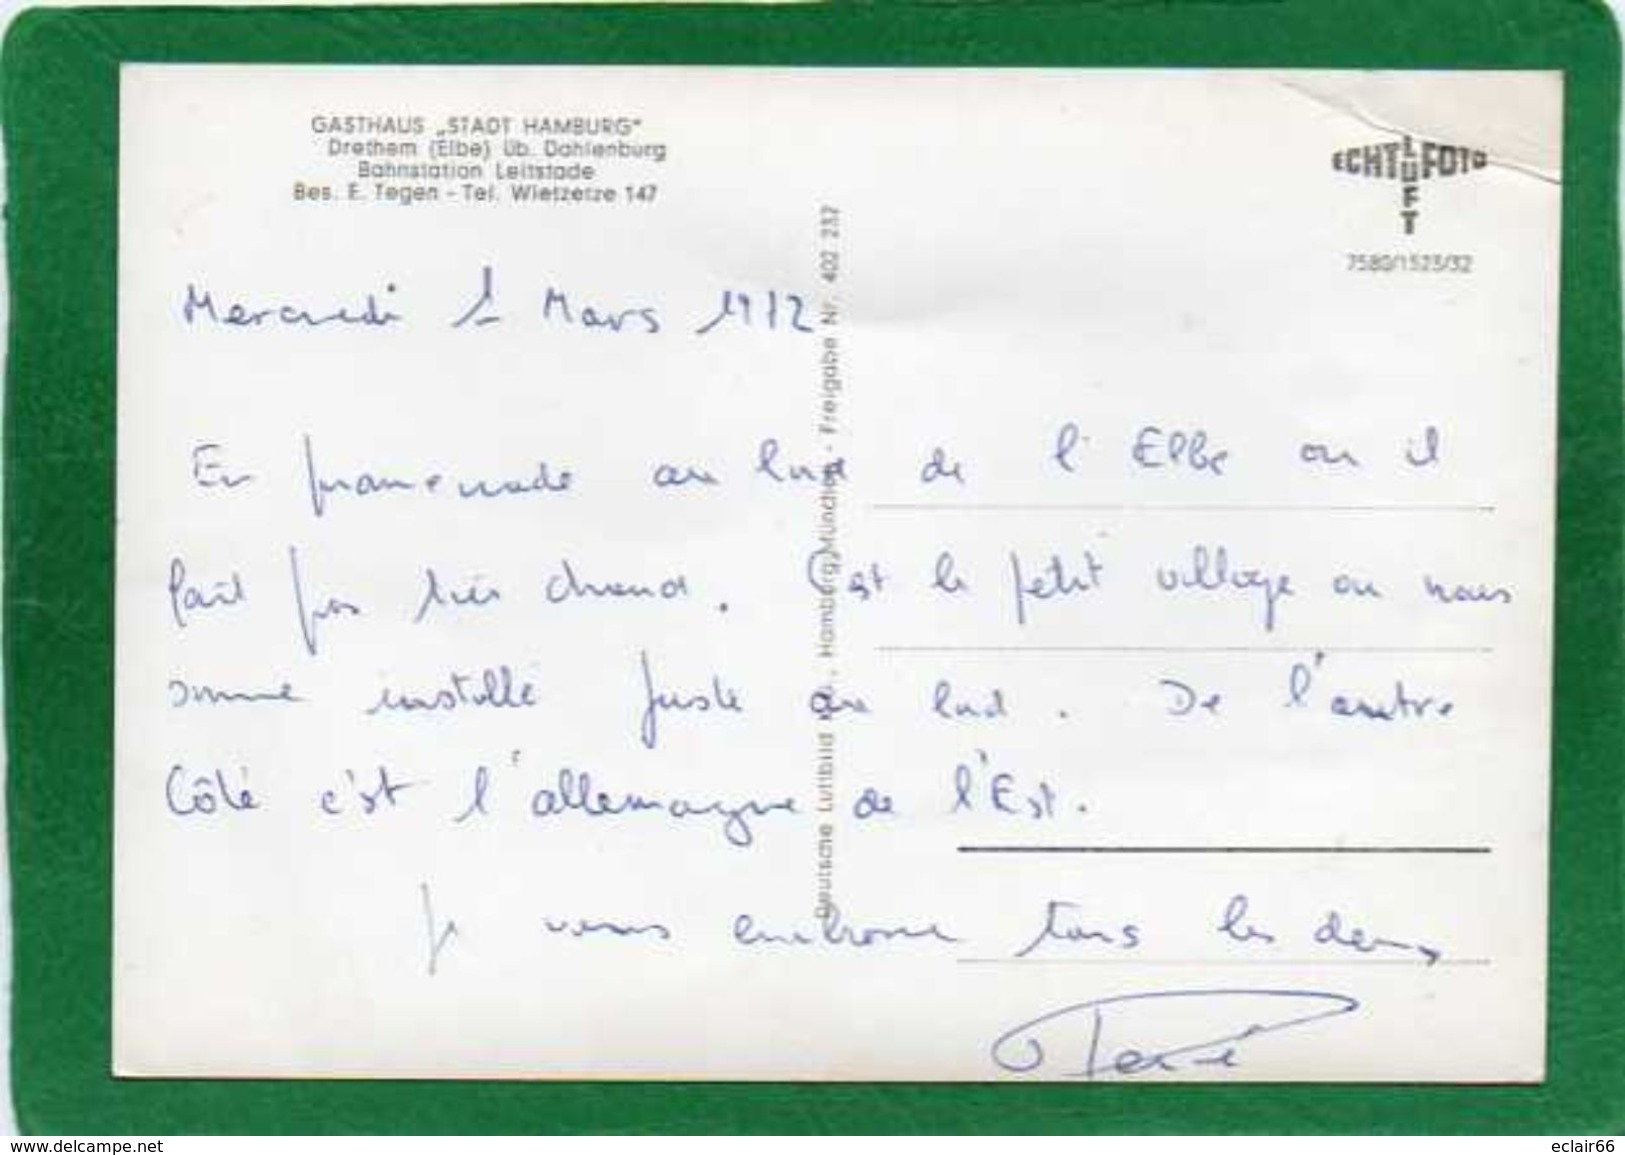 GASTHAUS „STADT HAMBURG"
Drethem (Elbe) üb. Dahlenburg
Bahnstation Leitstade
Bes. E. Tegen - Tel. Wietzetze 147
ECHT LUFT FOTO
7580/1523/32
Mercredi 1 Mars 1972
En promenade au bord de l'Elbe ou il
fait pas très chaud. C'est le petit village ou nous
somme installé juste au bord. De l'autre
Côté c'est l'allemagne de l'Est.
Je vous embrasse tous les deux
Deutsche Luftbild K.G., Hamburg/München - Freigabe Nr. 402 237
www.delcampe.net
eclair66